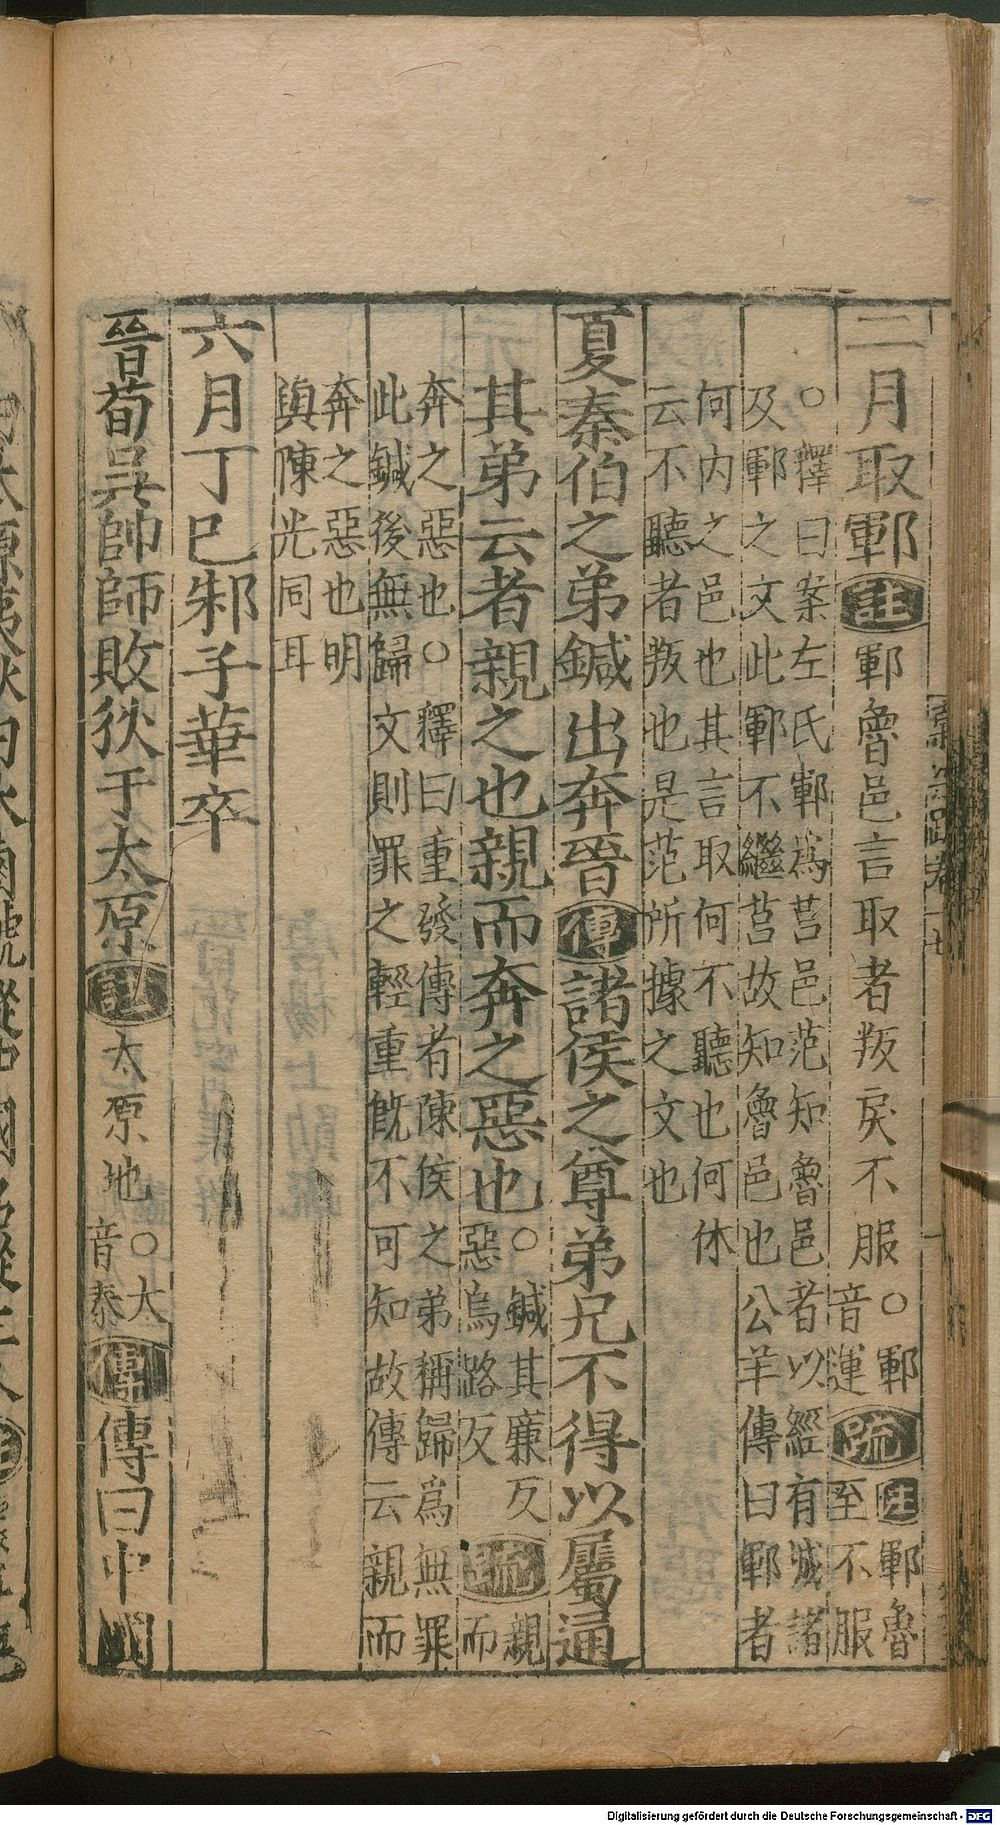 二月取鄆注鄆魯邑言取者叛戾不服○鄆音運疏注鄆魯至不服
○釋曰案左氏鄆為莒邑范知魯邑者以經有城諸
及鄆之文此鄆不繼莒故知魯邑也公羊傳曰鄆者
何內之邑也其言取何不聽也何休
云不聽者叛也是范所據之文也
夏秦伯之弟鍼出奔晉傳諸侯之尊弟兄不得以屬通
其弟云者親之也親而奔之惡也○鍼其廉反惡烏路反疏親而
奔之惡也○釋曰重發傳者陳侯之弟稱歸爲無罪
此鍼後無歸文則罪之輕重旣不可知故傳云親而
奔之惡也明
與陳光同耳
六月丁巳邾子華卒
晉荀吳帥師敗狄于太原注太原地○大音泰傳傳曰中國
Digitalisierung gefördert durch die Deutsche Forschungsgemeinschaft - DFG